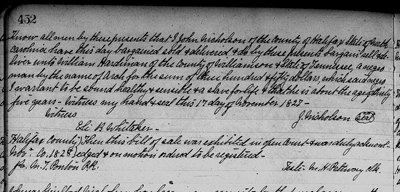 452
Know all men by these presents that I John Nicholson of the County of Halifax State of North
Carolina have this day bargained sold & delivered & do by these presents bargain sell & de
liver unto William Hardeman of the County of Williamson & State of Tennessee a negro
man by the name of Arch for the sum of three hundred & fifty dollars which said negro
I warrant to be sound healthy & sensible & a slave for life & that he is about the age of twenty
five years - witness my hand & seal this 17 day of November 1827 -
Witness J Nicholson Seal
Eli B Whitaker -
Halifax County} Then this bill of sale was exhibited in open court & was duly
Nov. Co. 1828 & on motion ordered to be registered -
M. T. Ponton P.R. Teste: M H Pettway Clk